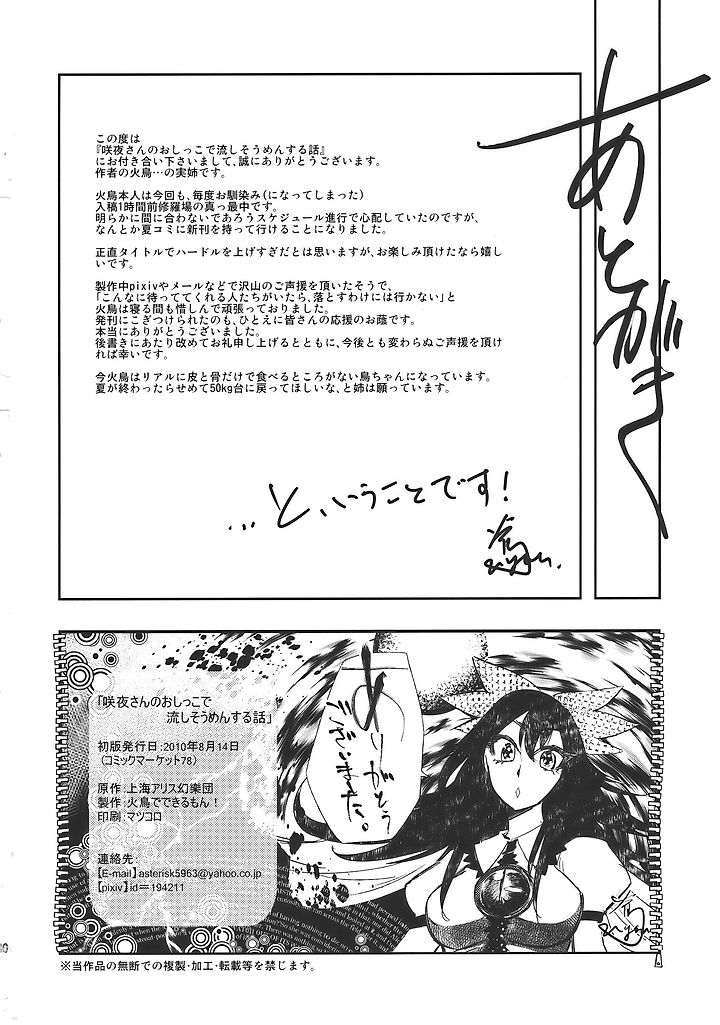 あとがき
この度は
『咲夜さんのおしっこで流しそうめんする話』
にお付き合い下さいまして、誠にありがとうございます。
作者の火鳥…の実姉です。
火鳥本人は今回も、毎度お馴染み(になってしまった)
入稿1時間前修羅場の真っ最中です。
明らかに間に合わないであろうスケジュール進行で心配していたのですが、
なんとか夏コミに新刊を持って行けることになりました。
正直タイトルでハードルを上げすぎだとは思いますが、お楽しみ頂けたなら嬉し
いです。
製作中pixivやメールなどで沢山のご声援を頂いたそうで、
「こんなに待っててくれる人たちがいたら、落とすわけには行かない」と
火鳥は寝る間も惜しんで頑張っておりました。
発刊にこぎつけられたのも、ひとえに皆さんの応援のお蔭です。
本当にありがとうございました。
後書きにあたり改めてお礼申し上げるとともに、今後とも変わらぬご声援を頂け
れば幸いです。
今火鳥はリアルに皮と骨だけで食べるところがない鳥ちゃんになっています。
夏が終わったらせめて50kg台に戻ってほしいな、と姉は願っています。
…と、いうことです!
「咲夜さんのおしっこで
流しそうめんする話」
初版発行日:2010年8月14日
(コミックマーケット78)
原作:上海アリス幻樂団
製作:火鳥でできるもん!
印刷:マツコロ
連絡先
【E-mail】asterisk5963@yahoo.co.jp
【pixiv】id=194211
ありがとう
ございました。
※当作品の無断での複製・加工・転載等を禁じます。